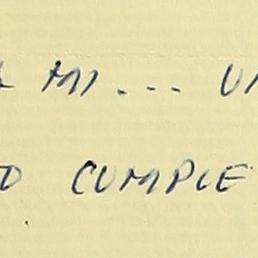 MI ... UN
CUMPLE